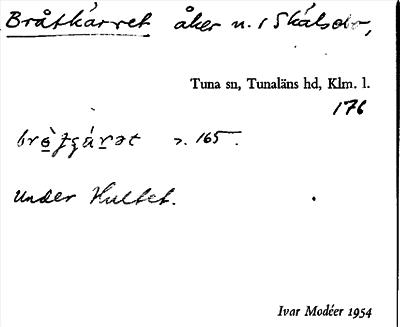 Bråtkärret åker n. i Skälsebo,
Tuna sn, Tunaläns hd, Klm. l.
176
165.
under Hultet.
Ivar Modéer 1954